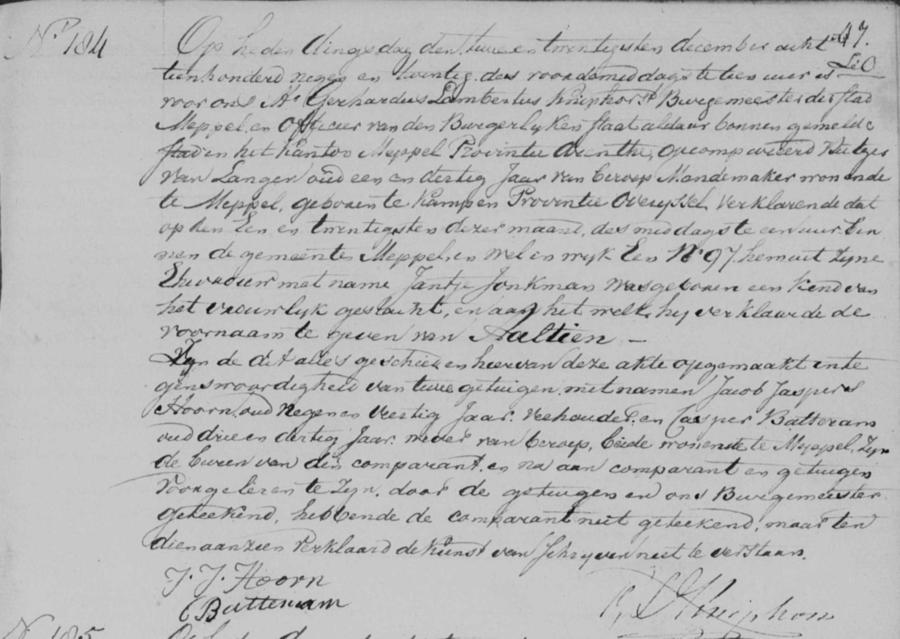 No 184
47.
Op heden dingsdag den twee en twentigsten december acht
tienhonderd negen en twentig, des voordemiddags te tien uur is
voor ons Mr Gerhardus Lambertus Kniphorst Burgemeester der stad
Meppel, en Officier van den Burgerlyken staat aldaar bonnen gemelde
stad in het Kanton Meppel Provintie Drenthe, gecompareerd
van Langen oud een en dertig Jaar van beroep Mandemaker wonende
te Meppel, geboren te Kampen Provintie Overyssel, verklarende dat
op den Een en twentigsten dezer maand, des middags te een uur bin
nen de gemeente Meppel, en wel en wyk Een No 97, hemuit Zyne
Ehevrouw met name Jantje Jonkman was geboren een kind van
het vrouwlyk geslacht, en aan het welk hy verklaarde de
voornaam te geven van Aaltien –
Zyn de dit alles geschied en hiervan deze akte opgemaakt in te
genswoordigheid van twee getuigen, met namen Jacob Jaspers
Hoorn, oud Negen en Veertig Jaar, Veehouder, en Casper
oud drie en dertig Jaar, wever van beroep, beide wonende te Meppel, Zyn
de buren van den comparant, en na aan comparant en getuigen
voorgelezen te Zyn, door de getuigen en ons Burgemeester
geteekend, hebbende de comparant niet geteekend, maar ten
dien aanzien verklaard de kunst van schryven niet te verstaan.
J. J. Hoorn
C Butterman
Kniphorst
No 185